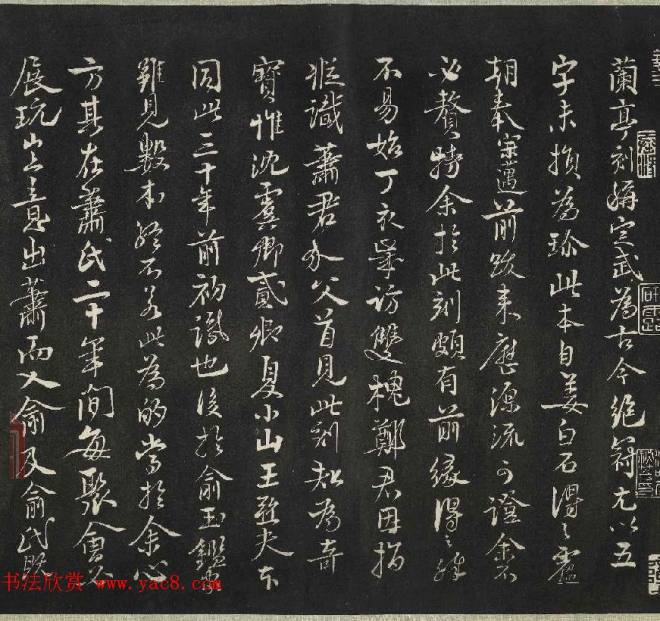 蘭亭刻稱定武為古今絕節尤以五
字未損為珍此本自姜白石得之霊
朝奉宗遇前跋来歷源流可證余不
必贅特余於此刻頗有前緣得之殊
不易始丁亥嵗訪雙槐鄭君因揭
識蕭君父首見此刻知為奇
寶惟沈虞卿貳卿夏小山王夫本
因此三十年前初識也後於俞玉鑑
雖見數本終不若此為的當於余心
方其在蕭氏二十年間每聚會必
展玩出意出蕭而入俞及俞氏既
书法欣赏 www.yac8.com